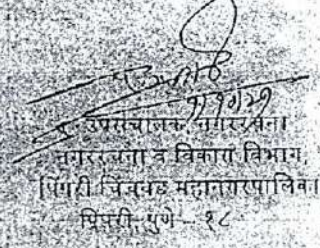 उपसंचालक, नगररचना
नगररचना व विकास विभाग,
पिंपरी चिंचवड महानगरपालिका
पिंपरी, पुणे - १८